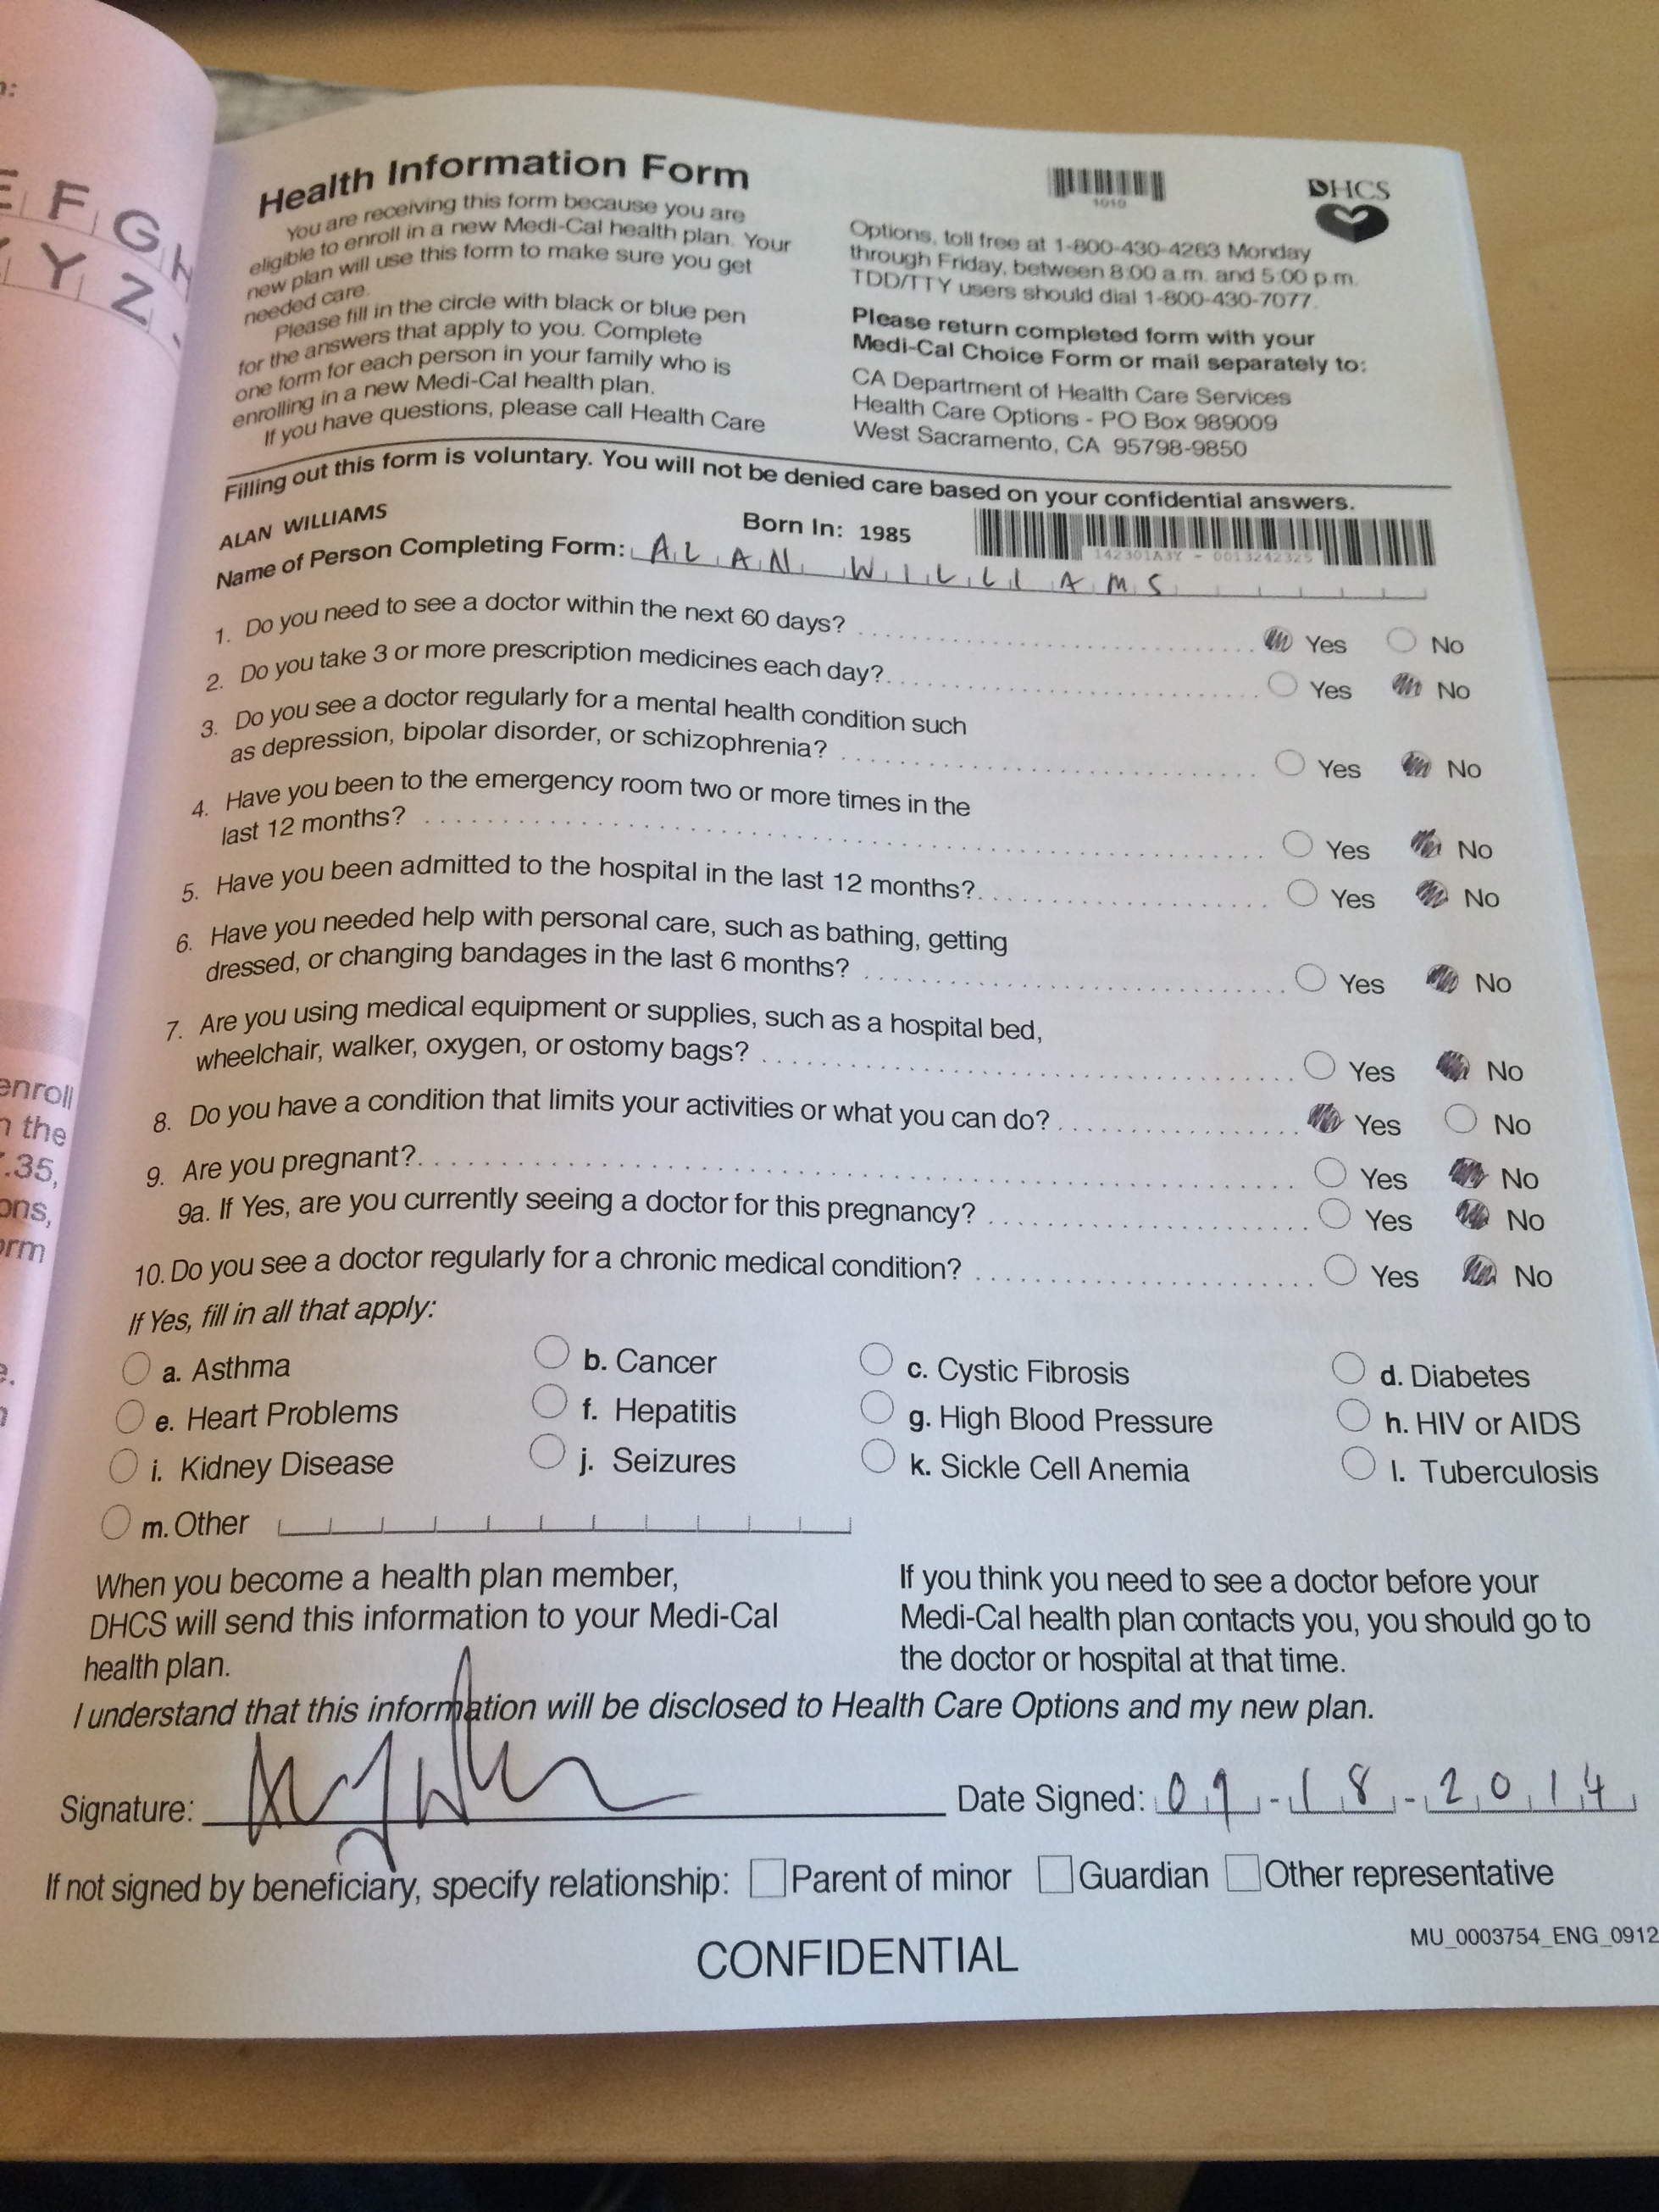 E F G H
Y Z
enroll
the
.35,
ons,
orm
Health Information Form
1010
DHCS
You are receiving this form because you are
eligible to enroll in a new Medi-Cal health plan. Your
new plan will use this form to make sure you get
needed care.
Please fill in the circle with black or blue pen
for the answers that apply to you. Complete
one form for each person in your family who is
enrolling in a new Medi-Cal health plan.
If you have questions, please call Health Care
Options, toll free at 1-800-430-4263 Monday
through Friday, between 8:00 a.m. and 5:00 p.m.
TDD/TTY users should dial 1-800-430-7077.
Please return completed form with your
Medi-Cal Choice Form or mail separately to:
CA Department of Health Care Services
Health Care Options - PO Box 989009
West Sacramento, CA 95798-9850
Filling out this form is voluntary. You will not be denied care based on your confidential answers.
ALAN WILLIAMS Born In: 1985
142301A3Y - 0013242325
Name of Person Completing Form: ALAN WILLIAMS
1. Do you need to see a doctor within the next 60 days? Yes No
2. Do you take 3 or more prescription medicines each day? Yes No
3. Do you see a doctor regularly for a mental health condition such
as depression, bipolar disorder, or schizophrenia? Yes No
4. Have you been to the emergency room two or more times in the
last 12 months? Yes No
5. Have you been admitted to the hospital in the last 12 months? Yes No
6. Have you needed help with personal care, such as bathing, getting
dressed, or changing bandages in the last 6 months? Yes No
7. Are you using medical equipment or supplies, such as a hospital bed,
wheelchair, walker, oxygen, or ostomy bags? Yes No
8. Do you have a condition that limits your activities or what you can do? Yes No
9. Are you pregnant? Yes No
9a. If Yes, are you currently seeing a doctor for this pregnancy? Yes No
10. Do you see a doctor regularly for a chronic medical condition? Yes No
If Yes, fill in all that apply:
a. Asthma b. Cancer c. Cystic Fibrosis d. Diabetes
e. Heart Problems f. Hepatitis g. High Blood Pressure h. HIV or AIDS
i. Kidney Disease j. Seizures k. Sickle Cell Anemia l. Tuberculosis
m. Other
When you become a health plan member,
DHCS will send this information to your Medi-Cal
health plan.
If you think you need to see a doctor before your
Medi-Cal health plan contacts you, you should go to
the doctor or hospital at that time.
I understand that this information will be disclosed to Health Care Options and my new plan.
Signature: Date Signed: 09-18-2014
If not signed by beneficiary, specify relationship: Parent of minor Guardian Other representative
CONFIDENTIAL
MU_0003754_ENG_0912